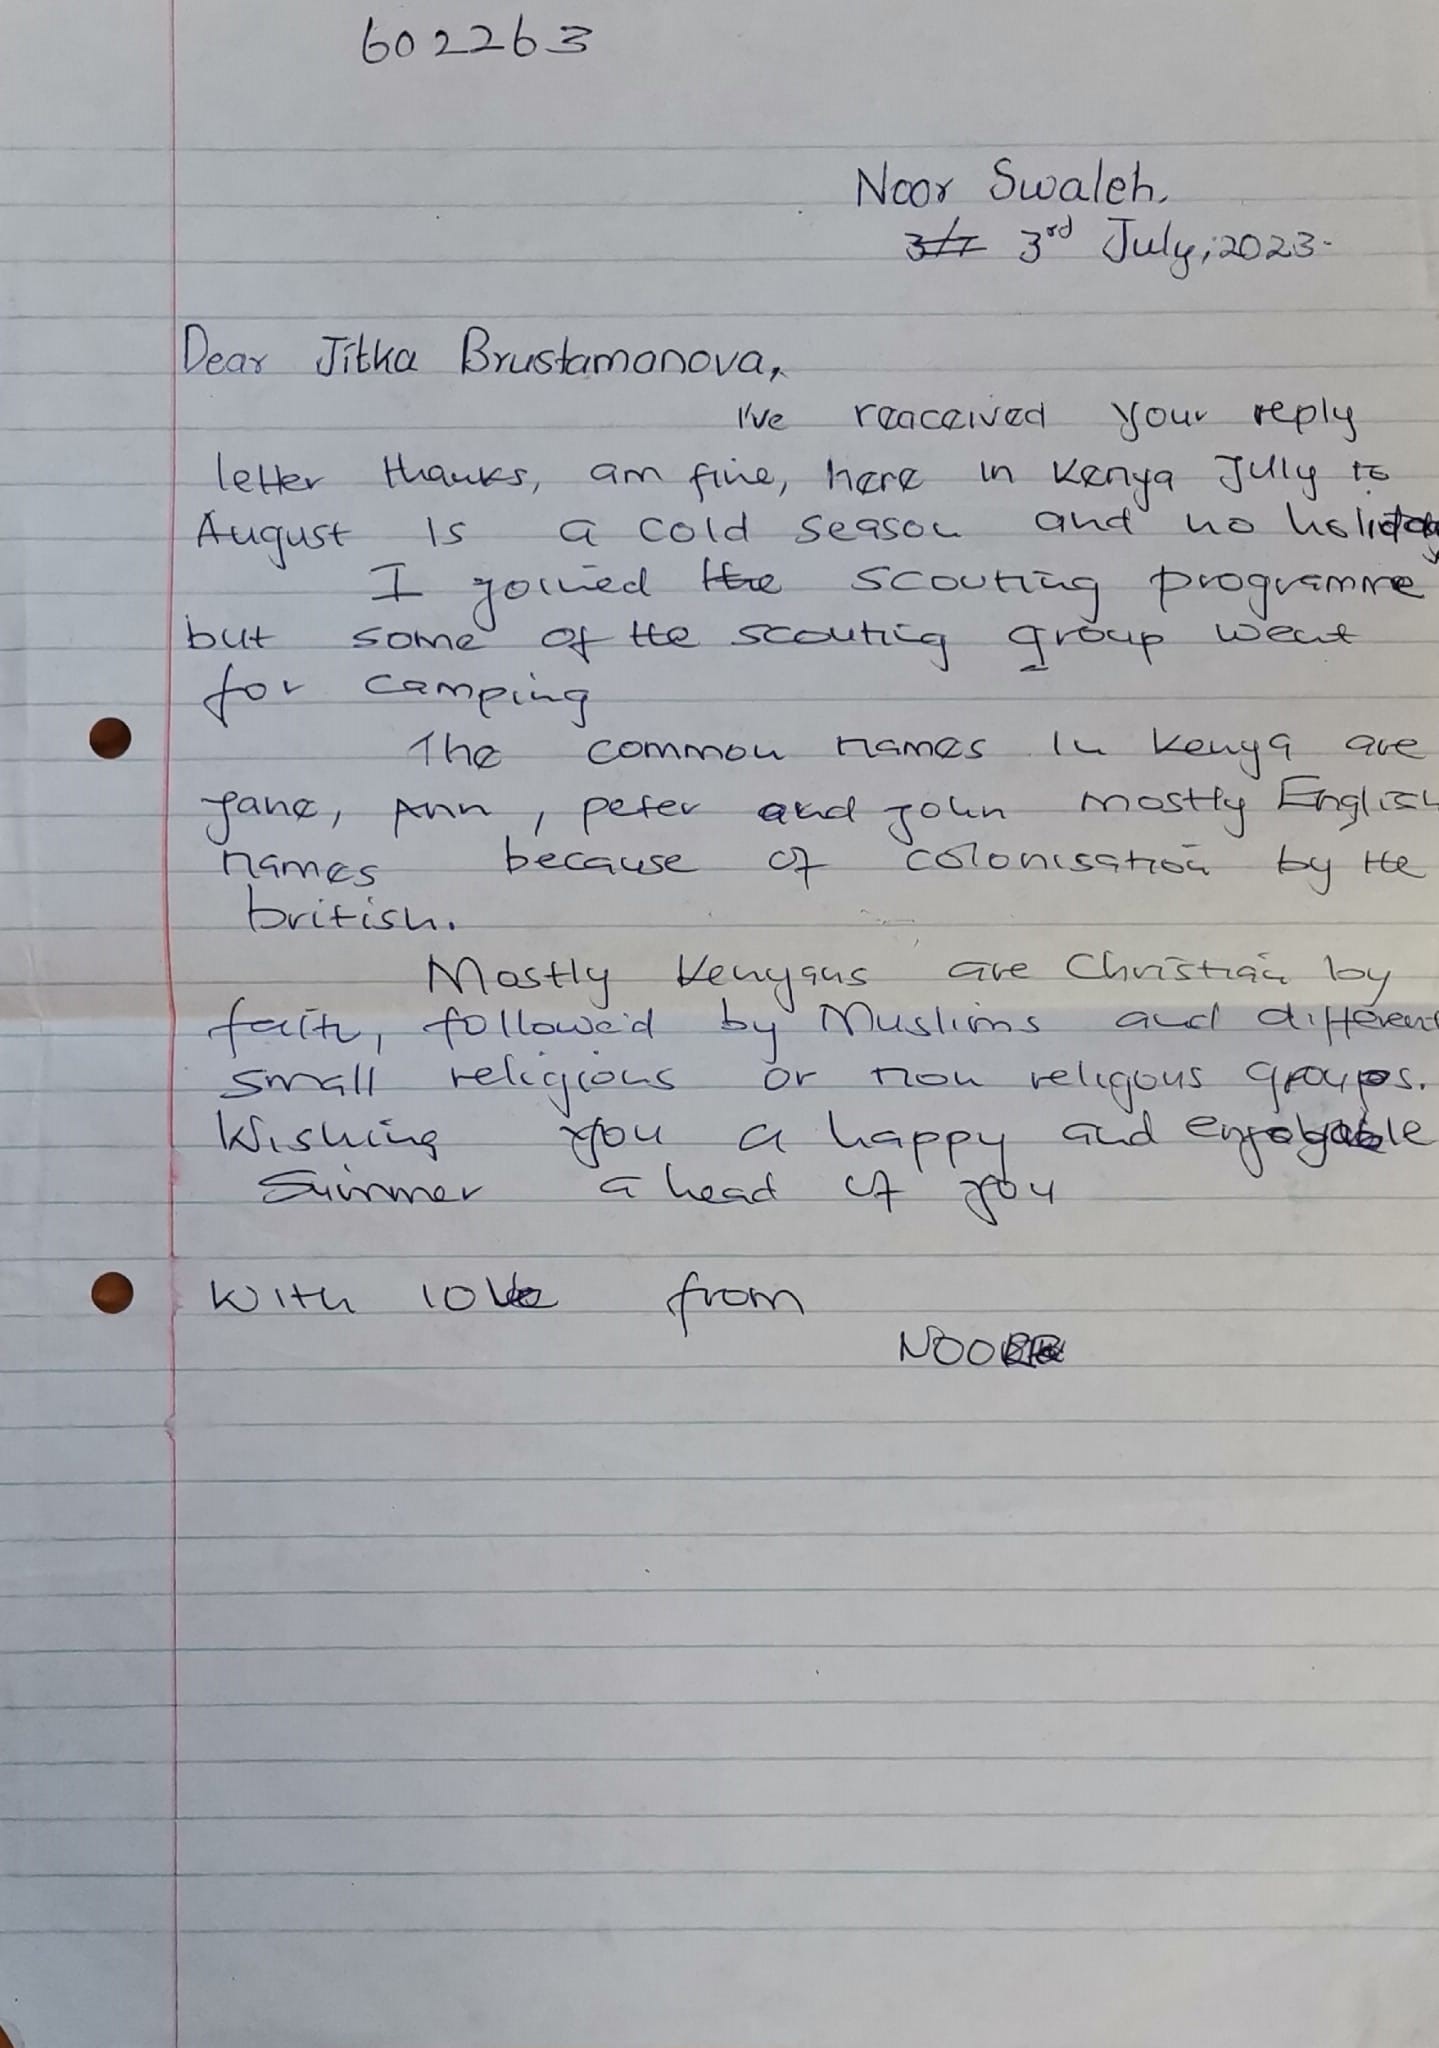 602263
Noor Swaleh.
3/7 3rd July, 2023.
Dear Jitka Brustamanova,
I've reaceived your reply
letter thanks, am fine, here in Kenya July to
August is a cold season and no holiday
I joined the scouting programme
but some of the scouting group went
for camping
The common names in Kenya are
Jane, Ann, peter and john mostly English
names because of colonisation by the
british.
Mostly Kenyans are Christian by
faith, followed by Muslims and different
small religious or non religous groups.
Wishing you a happy and enjoyable
Summer ahead of you
With love from
NOOR